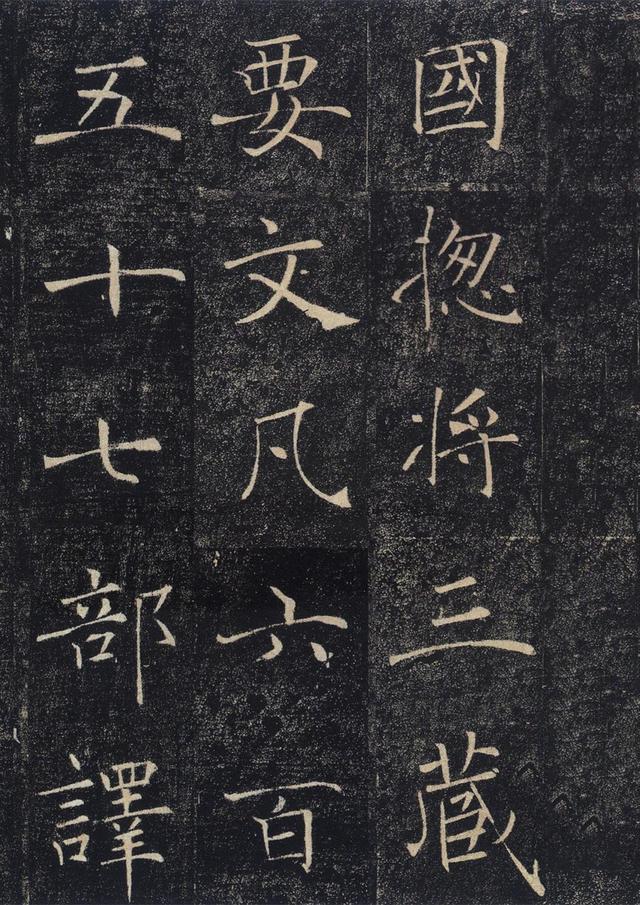 國揔将三藏
要文凡六百
五十七部譯